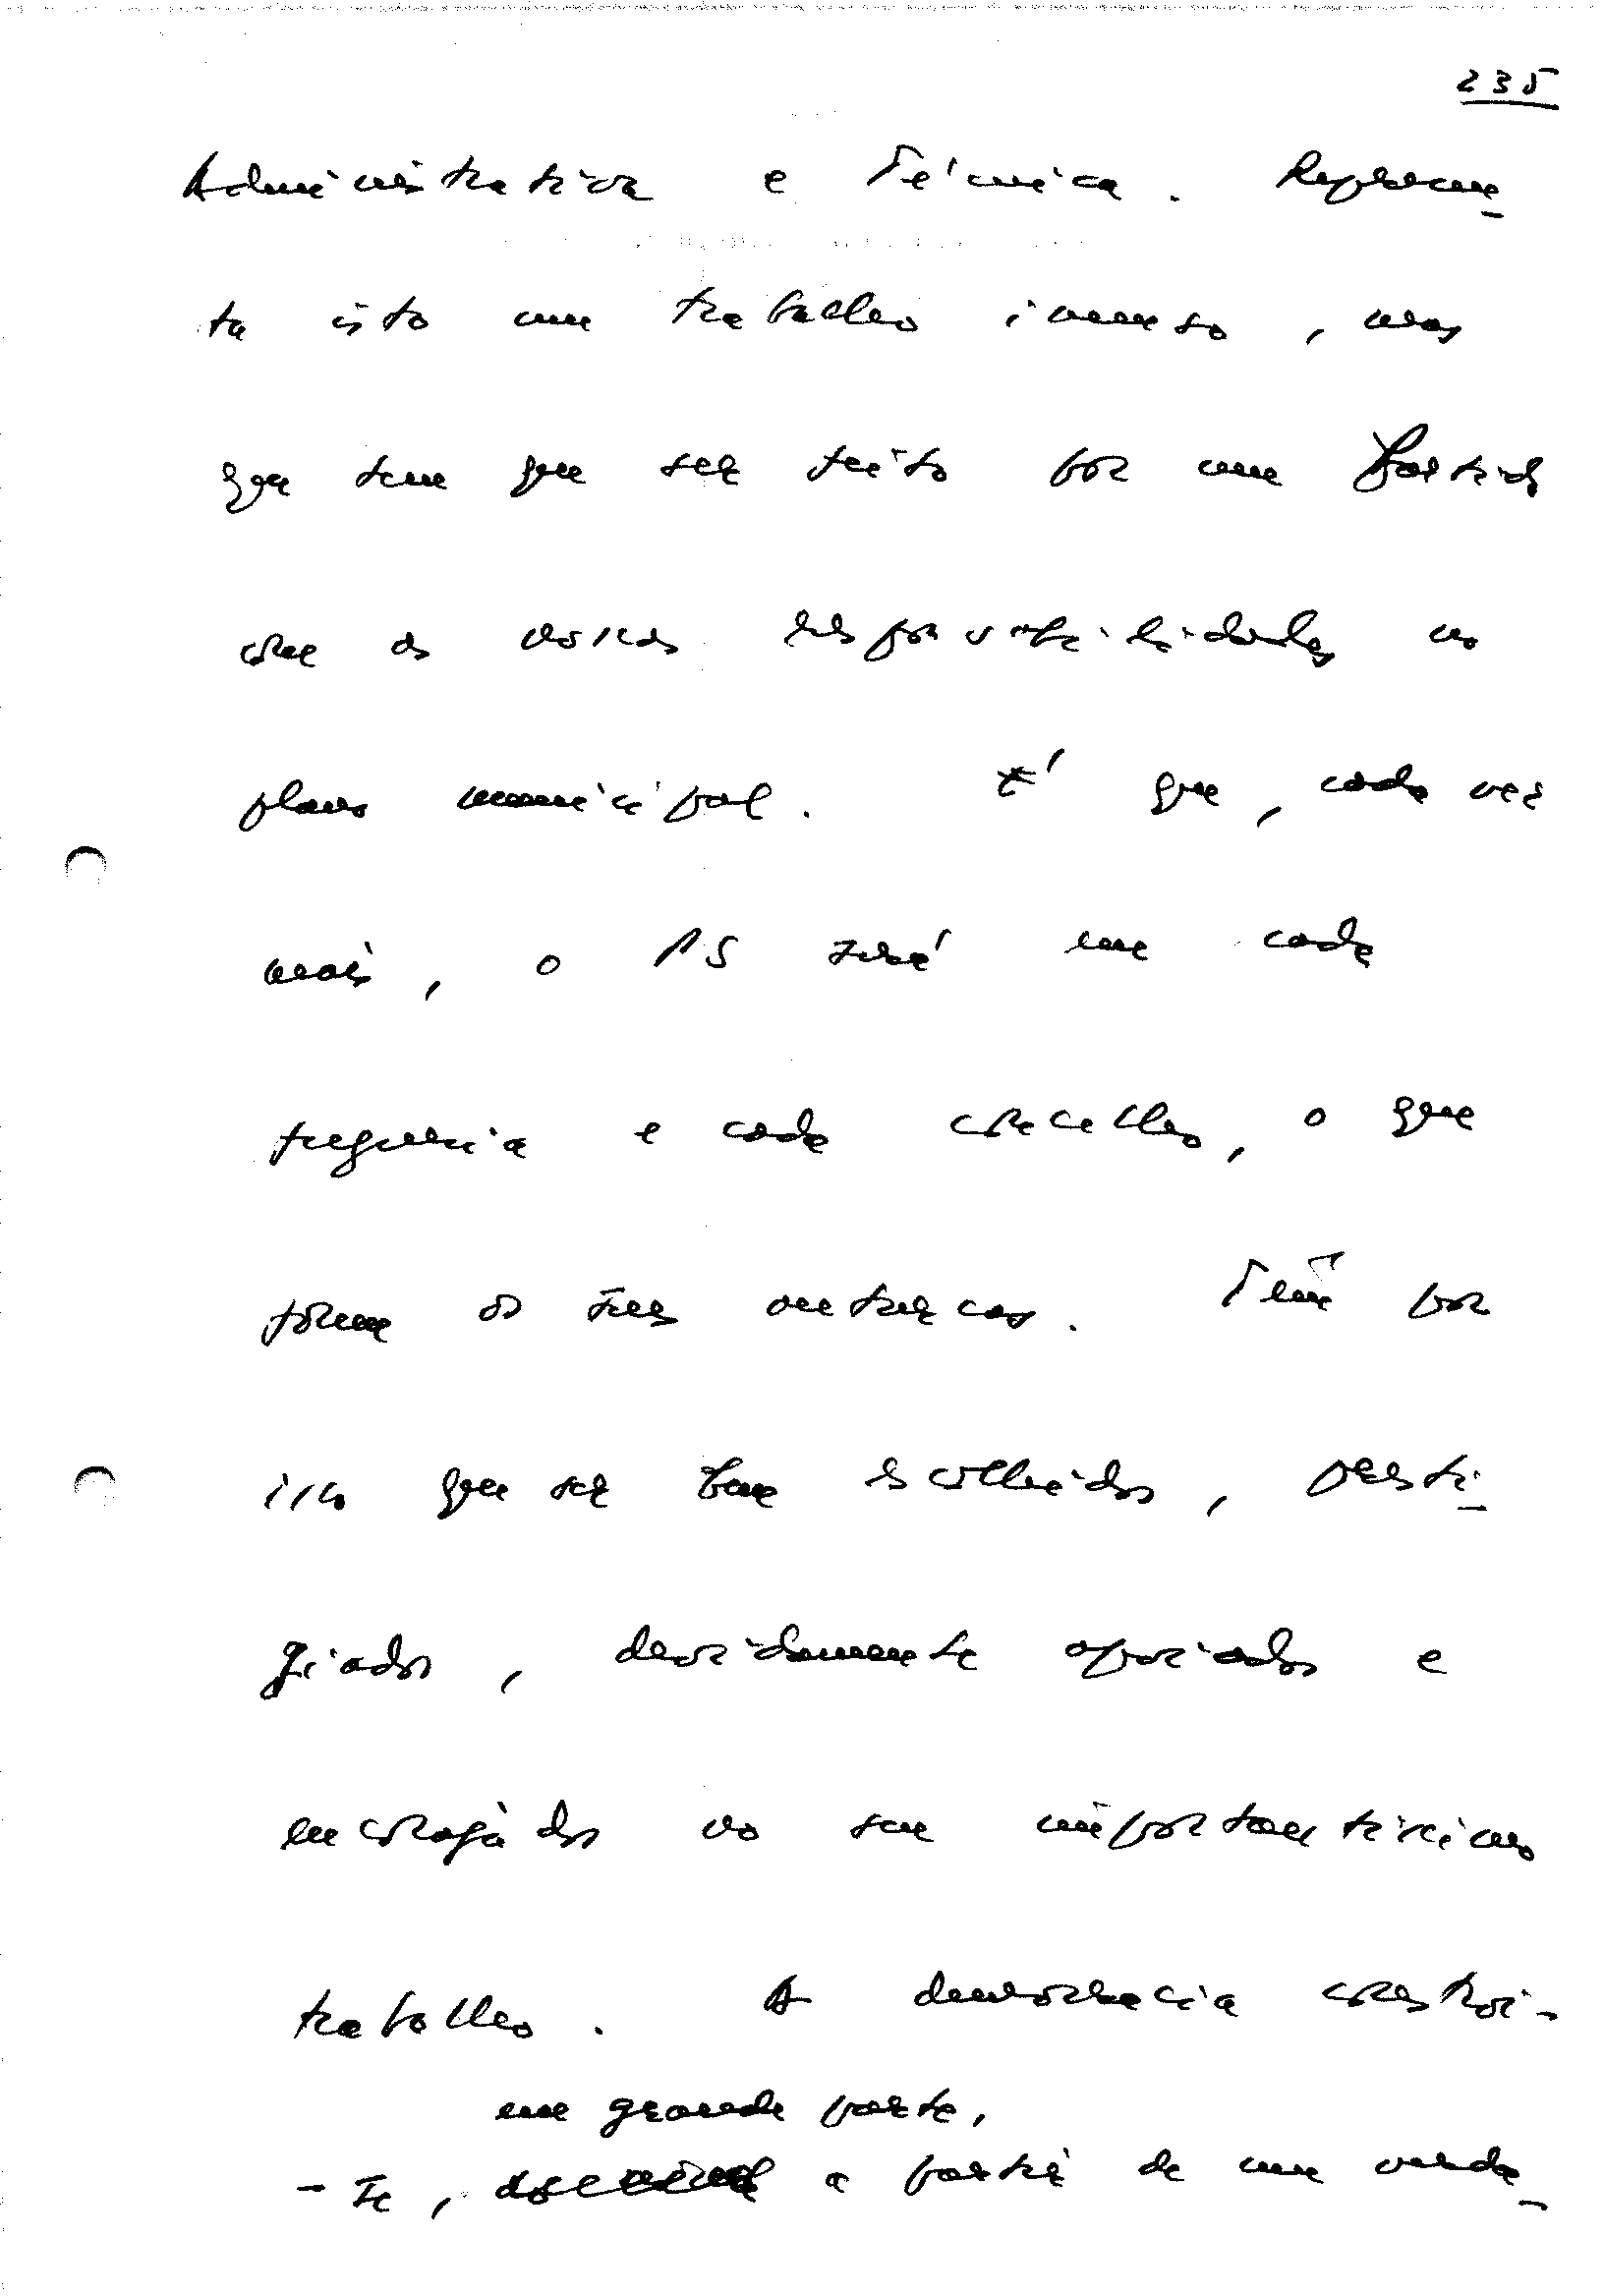 235
Administrativa e Técnica. Represen-
ta isto um trabalho imenso, mas
que tem que ser feito por um Partido
com as nossas responsabilidades no
plano municipal. É que, cada vez
mais, o PS será em cada
freguesia e cada concelho, o que
forem os seus autarcas. Têm por
isso que ser bem escolhidos, presti-
giados, devidamente apoiados e
encorajados no seu importantíssimo
trabalho. A democracia constroi-
em grande parte,
-se, a partir de uma verda-